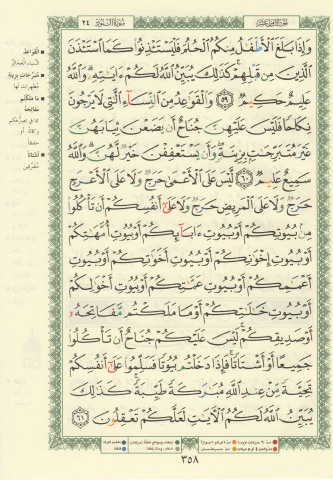 الجزء الثامن عشر
سورة النور ٢٤
وَإِذَا بَلَغَ الْأَطْفَالُ مِنكُمُ الْحُلُمَ فَلْيَسْتَأْذِنُوا كَمَا اسْتَأْذَنَ
الَّذِينَ مِن قَبْلِهِمْ كَذَٰلِكَ يُبَيِّنُ اللَّهُ لَكُمْ آيَاتِهِ وَاللَّهُ
عَلِيمٌ حَكِيمٌ ٥٩ وَالْقَوَاعِدُ مِنَ النِّسَاءِ الَّتِي لَا يَرْجُونَ
نِكَاحًا فَلَيْسَ عَلَيْهِنَّ جُنَاحٌ أَن يَضَعْنَ ثِيَابَهُنَّ
غَيْرَ مُتَبَرِّجَاتٍ بِزِينَةٍ وَأَن يَسْتَعْفِفْنَ خَيْرٌ لَّهُنَّ وَاللَّهُ
سَمِيعٌ عَلِيمٌ ٦٠ لَّيْسَ عَلَى الْأَعْمَىٰ حَرَجٌ وَلَا عَلَى الْأَعْرَجِ
حَرَجٌ وَلَا عَلَى الْمَرِيضِ حَرَجٌ وَلَا عَلَىٰ أَنفُسِكُمْ أَن تَأْكُلُوا
مِن بُيُوتِكُمْ أَوْ بُيُوتِ آبَائِكُمْ أَوْ بُيُوتِ أُمَّهَاتِكُمْ
أَوْ بُيُوتِ إِخْوَانِكُمْ أَوْ بُيُوتِ أَخَوَاتِكُمْ أَوْ بُيُوتِ
أَعْمَامِكُمْ أَوْ بُيُوتِ عَمَّاتِكُمْ أَوْ بُيُوتِ أَخْوَالِكُمْ
أَوْ بُيُوتِ خَالَاتِكُمْ أَوْ مَا مَلَكْتُم مَّفَاتِحَهُ
أَوْ صَدِيقِكُمْ لَيْسَ عَلَيْكُمْ جُنَاحٌ أَن تَأْكُلُوا
جَمِيعًا أَوْ أَشْتَاتًا فَإِذَا دَخَلْتُم بُيُوتًا فَسَلِّمُوا عَلَىٰ أَنفُسِكُمْ
تَحِيَّةً مِّنْ عِندِ اللَّهِ مُبَارَكَةً طَيِّبَةً كَذَٰلِكَ
يُبَيِّنُ اللَّهُ لَكُمُ الْآيَاتِ لَعَلَّكُمْ تَعْقِلُونَ ٦١
٣٥٨
القواعد
النساء العجائز
متبرجات بزينة
مظهرات لها
ما ملكتم
مفاتحه
أشتاتا
متفرقين